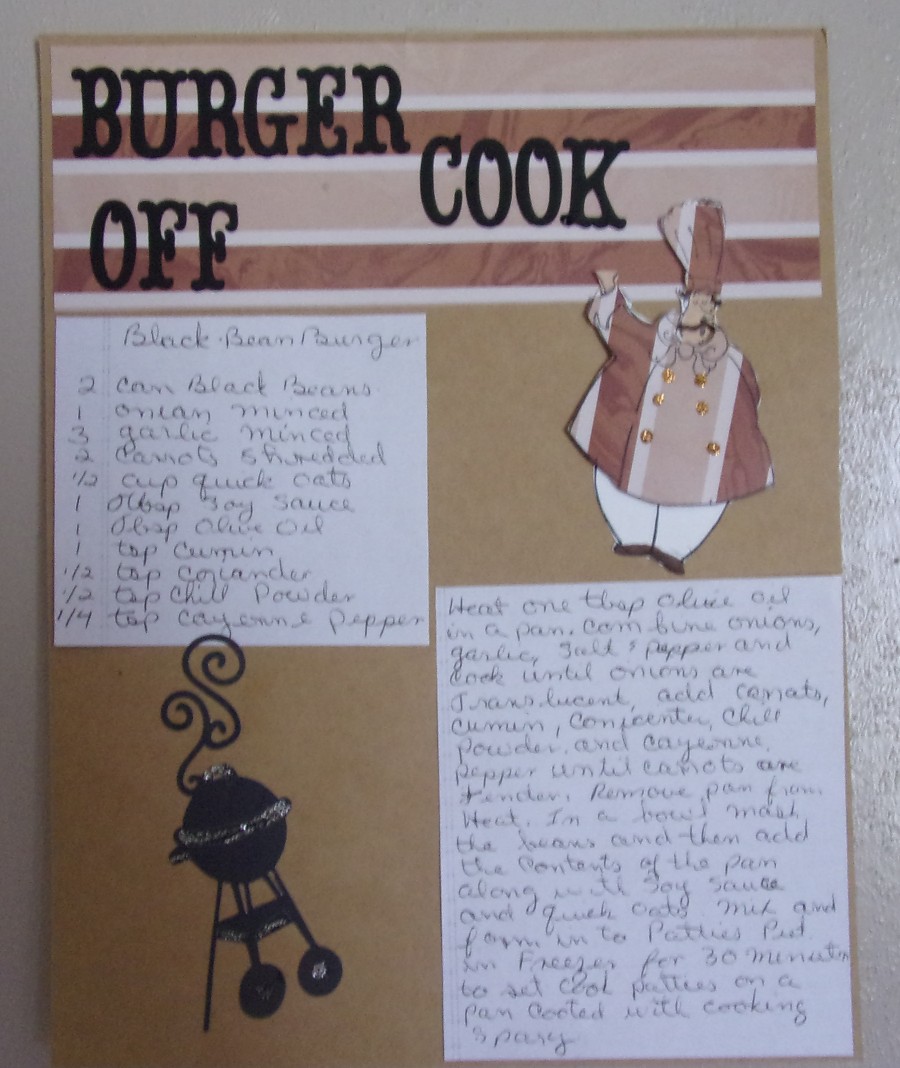 BURGER
COOK
OFF
Black Bean Burger
2 can Black Beans
1 onion minced
3 garlic minced
2 carrots shredded
1/2 cup quick oats
1 tbsp Soy Sauce
1 tbsp Olive Oil
1 tsp Cumin
1/2 tsp coriander
1/2 tsp Chili Powder
1/4 tsp cayenne pepper
Heat one tbsp Olive oil
in a pan. Combine onions,
garlic, salt & pepper and
Cook until onions are
Translucent, add carrots,
Cumin, Chili
powder, and cayenne
pepper until carrots are
tender. Remove pan from
Heat. In a bowl mash
the beans and then add
the contents of the pan
along with Soy Sauce
and quick oats Mix and
form in to Patties Put
in Freezer for 30 minutes
to set Cook patties on a
pan Cooted with cooking
spary